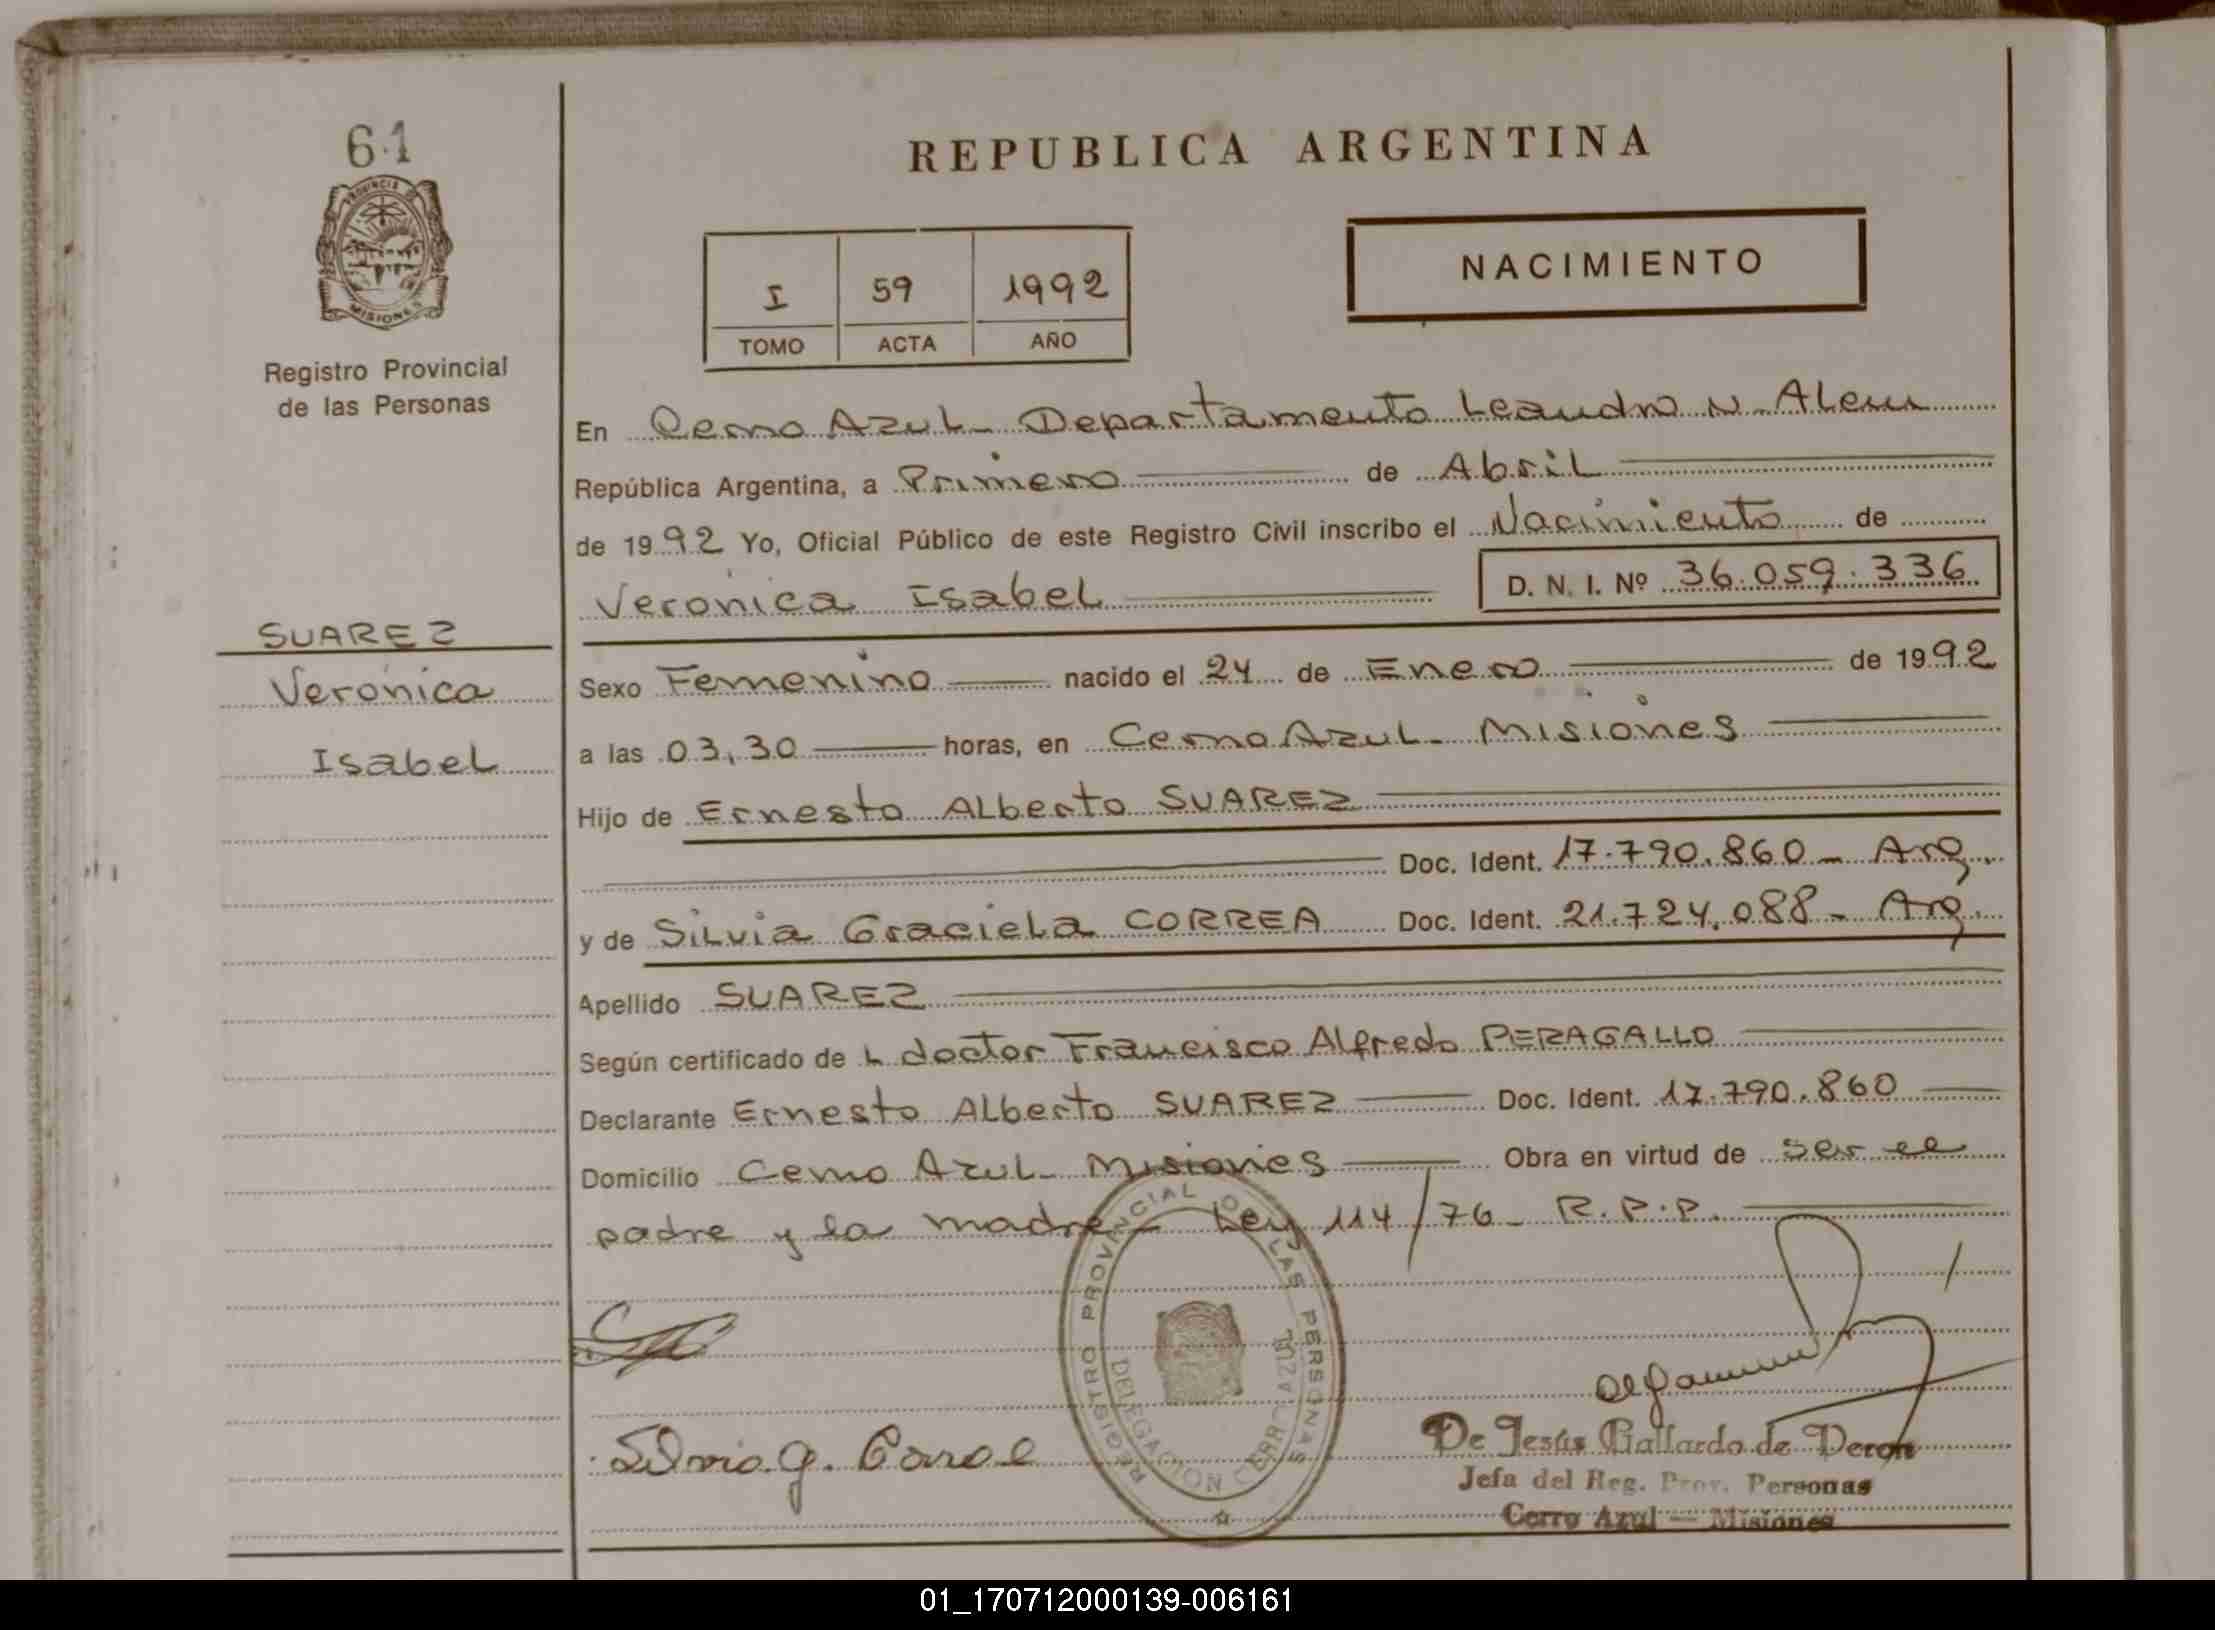 61
PROVINCIA DE
MISIONES
Registro Provincial
de las Personas
SUAREZ
Verónica
Isabel
REPUBLICA ARGENTINA
I 59 1992
TOMO ACTA AÑO
NACIMIENTO
En Cerro Azul - Departamento Leandro N. Alem
República Argentina, a Primero de Abril
de 1992 Yo, Oficial Público de este Registro Civil inscribo el Nacimiento de
Verónica Isabel D. N. I. Nº 36.059.336
Sexo Femenino nacido el 24 de Enero de 1992
a las 03,30 horas, en Cerro Azul - Misiones
Hijo de Ernesto Alberto SUAREZ
Doc. Ident. 17.790.860 - Arg.
y de Silvia Graciela CORREA Doc. Ident. 21.724.088 - Arg.
Apellido SUAREZ
Según certificado de L doctor Francisco Alfredo PERAGALLO
Declarante Ernesto Alberto SUAREZ Doc. Ident. 17.790.860
Domicilio Cerro Azul - Misiones Obra en virtud de ser el
padre y la madre - Ley 114/76 - R.P.P.
REGISTRO PROVINCIAL DE LAS PERSONAS
DELEGACION CERRO AZUL
Silvia G. Correa
De Jesús Gallardo de Deron
Jefa del Reg. Prov. Personas
Cerro Azul — Misiones
01_170712000139-006161